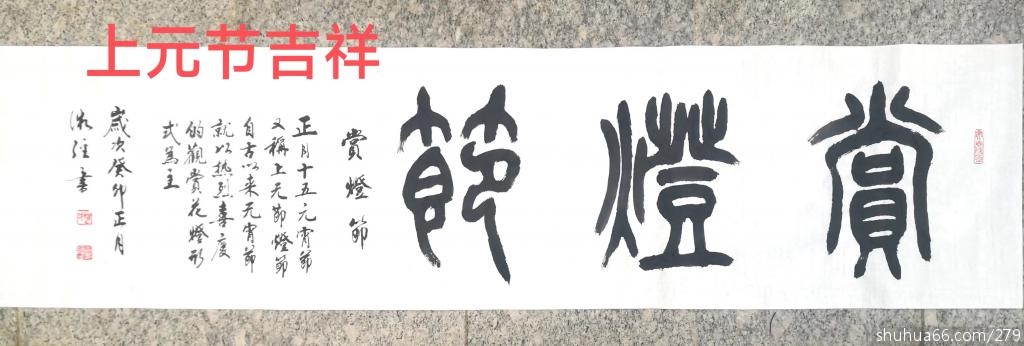 上元节吉祥
賞燈節
賞燈節
正月十五元宵節
又稱上元節燈節
自古以来元宵節
就以热烈喜度
的觀賞花燈形
式為主
歲次癸卯正月
書
shuhua66.com/279